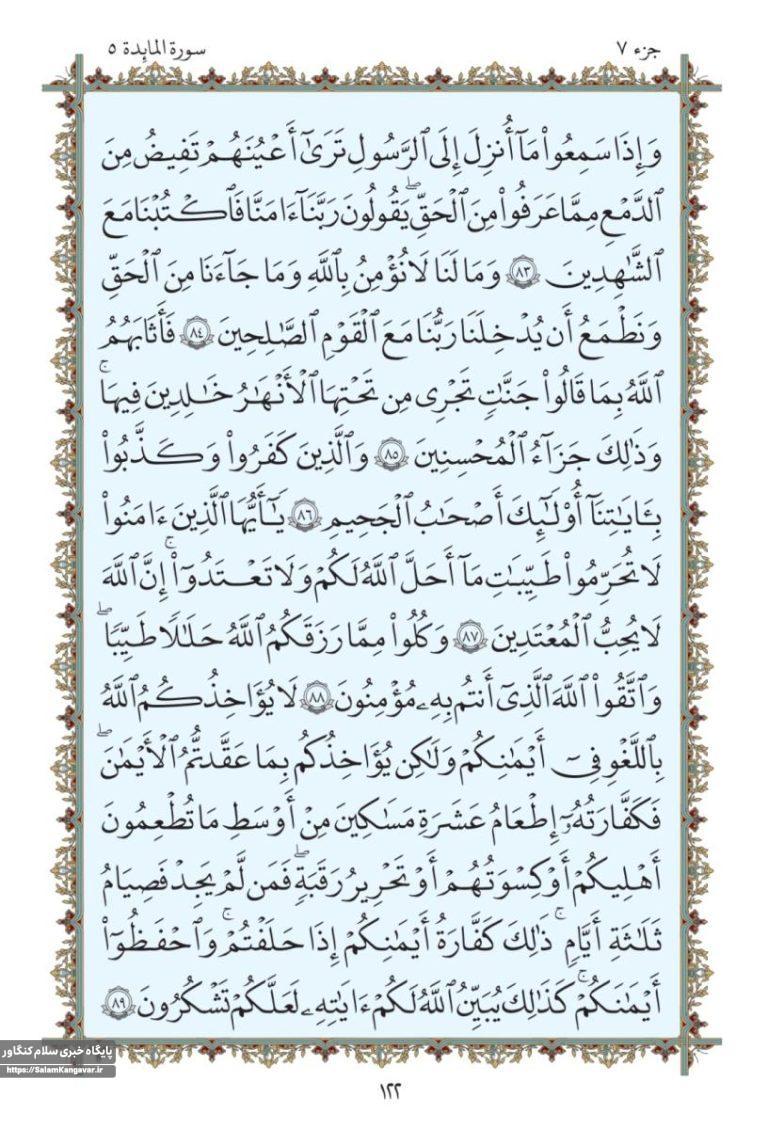 جزء ٧
سورة المائدة ٥
وَإِذَا سَمِعُوا۟ مَآ أُنزِلَ إِلَى ٱلرَّسُولِ تَرَىٰٓ أَعْيُنَهُمْ تَفِيضُ مِنَ
ٱلدَّمْعِ مِمَّا عَرَفُوا۟ مِنَ ٱلْحَقِّ ۖ يَقُولُونَ رَبَّنَآ ءَامَنَّا فَٱكْتُبْنَا مَعَ
ٱلشَّٰهِدِينَ ٨٣ وَمَا لَنَا لَا نُؤْمِنُ بِٱللَّهِ وَمَا جَآءَنَا مِنَ ٱلْحَقِّ
وَنَطْمَعُ أَن يُدْخِلَنَا رَبُّنَا مَعَ ٱلْقَوْمِ ٱلصَّٰلِحِينَ ٨٤ فَأَثَٰبَهُمُ
ٱللَّهُ بِمَا قَالُوا۟ جَنَّٰتٍ تَجْرِى مِن تَحْتِهَا ٱلْأَنْهَٰرُ خَٰلِدِينَ فِيهَا ۚ
وَذَٰلِكَ جَزَآءُ ٱلْمُحْسِنِينَ ٨٥ وَٱلَّذِينَ كَفَرُوا۟ وَكَذَّبُوا۟
بِـَٔايَٰتِنَآ أُو۟لَٰٓئِكَ أَصْحَٰبُ ٱلْجَحِيمِ ٨٦ يَٰٓأَيُّهَا ٱلَّذِينَ ءَامَنُوا۟
لَا تُحَرِّمُوا۟ طَيِّبَٰتِ مَآ أَحَلَّ ٱللَّهُ لَكُمْ وَلَا تَعْتَدُوٓا۟ ۚ إِنَّ ٱللَّهَ
لَا يُحِبُّ ٱلْمُعْتَدِينَ ٨٧ وَكُلُوا۟ مِمَّا رَزَقَكُمُ ٱللَّهُ حَلَٰلًا طَيِّبًا ۚ
وَٱتَّقُوا۟ ٱللَّهَ ٱلَّذِىٓ أَنتُم بِهِۦ مُؤْمِنُونَ ٨٨ لَا يُؤَاخِذُكُمُ ٱللَّهُ
بِٱللَّغْوِ فِىٓ أَيْمَٰنِكُمْ وَلَٰكِن يُؤَاخِذُكُم بِمَا عَقَّدتُّمُ ٱلْأَيْمَٰنَ ۖ
فَكَفَّٰرَتُهُۥٓ إِطْعَامُ عَشَرَةِ مَسَٰكِينَ مِنْ أَوْسَطِ مَا تُطْعِمُونَ
أَهْلِيكُمْ أَوْ كِسْوَتُهُمْ أَوْ تَحْرِيرُ رَقَبَةٍ ۖ فَمَن لَّمْ يَجِدْ فَصِيَامُ
ثَلَٰثَةِ أَيَّامٍ ۚ ذَٰلِكَ كَفَّٰرَةُ أَيْمَٰنِكُمْ إِذَا حَلَفْتُمْ ۚ وَٱحْفَظُوٓا۟
أَيْمَٰنَكُمْ ۚ كَذَٰلِكَ يُبَيِّنُ ٱللَّهُ لَكُمْ ءَايَٰتِهِۦ لَعَلَّكُمْ تَشْكُرُونَ ٨٩
پایگاه خبری سلام کنگاور
https://SalamKangavar.ir
١٢٢